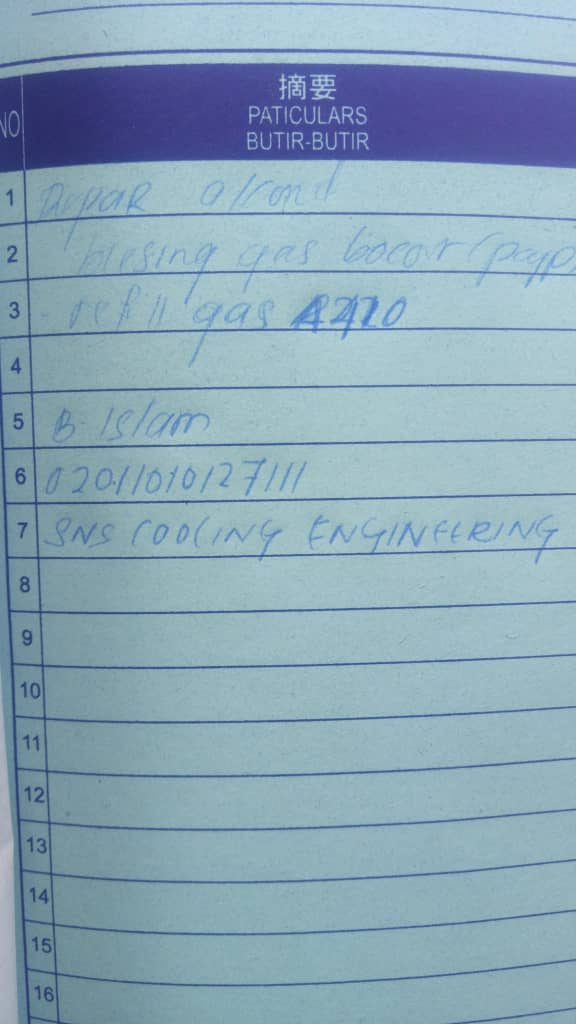 NO
摘要
PATICULARS
BUTIR-BUTIR
1 Repar a/cond
2 gas bocor
3 - refill gas
4
5 B. Islam
6 02011010127111
7 SNS COOLING ENGINEERING
8
9
10
11
12
13
14
15
16